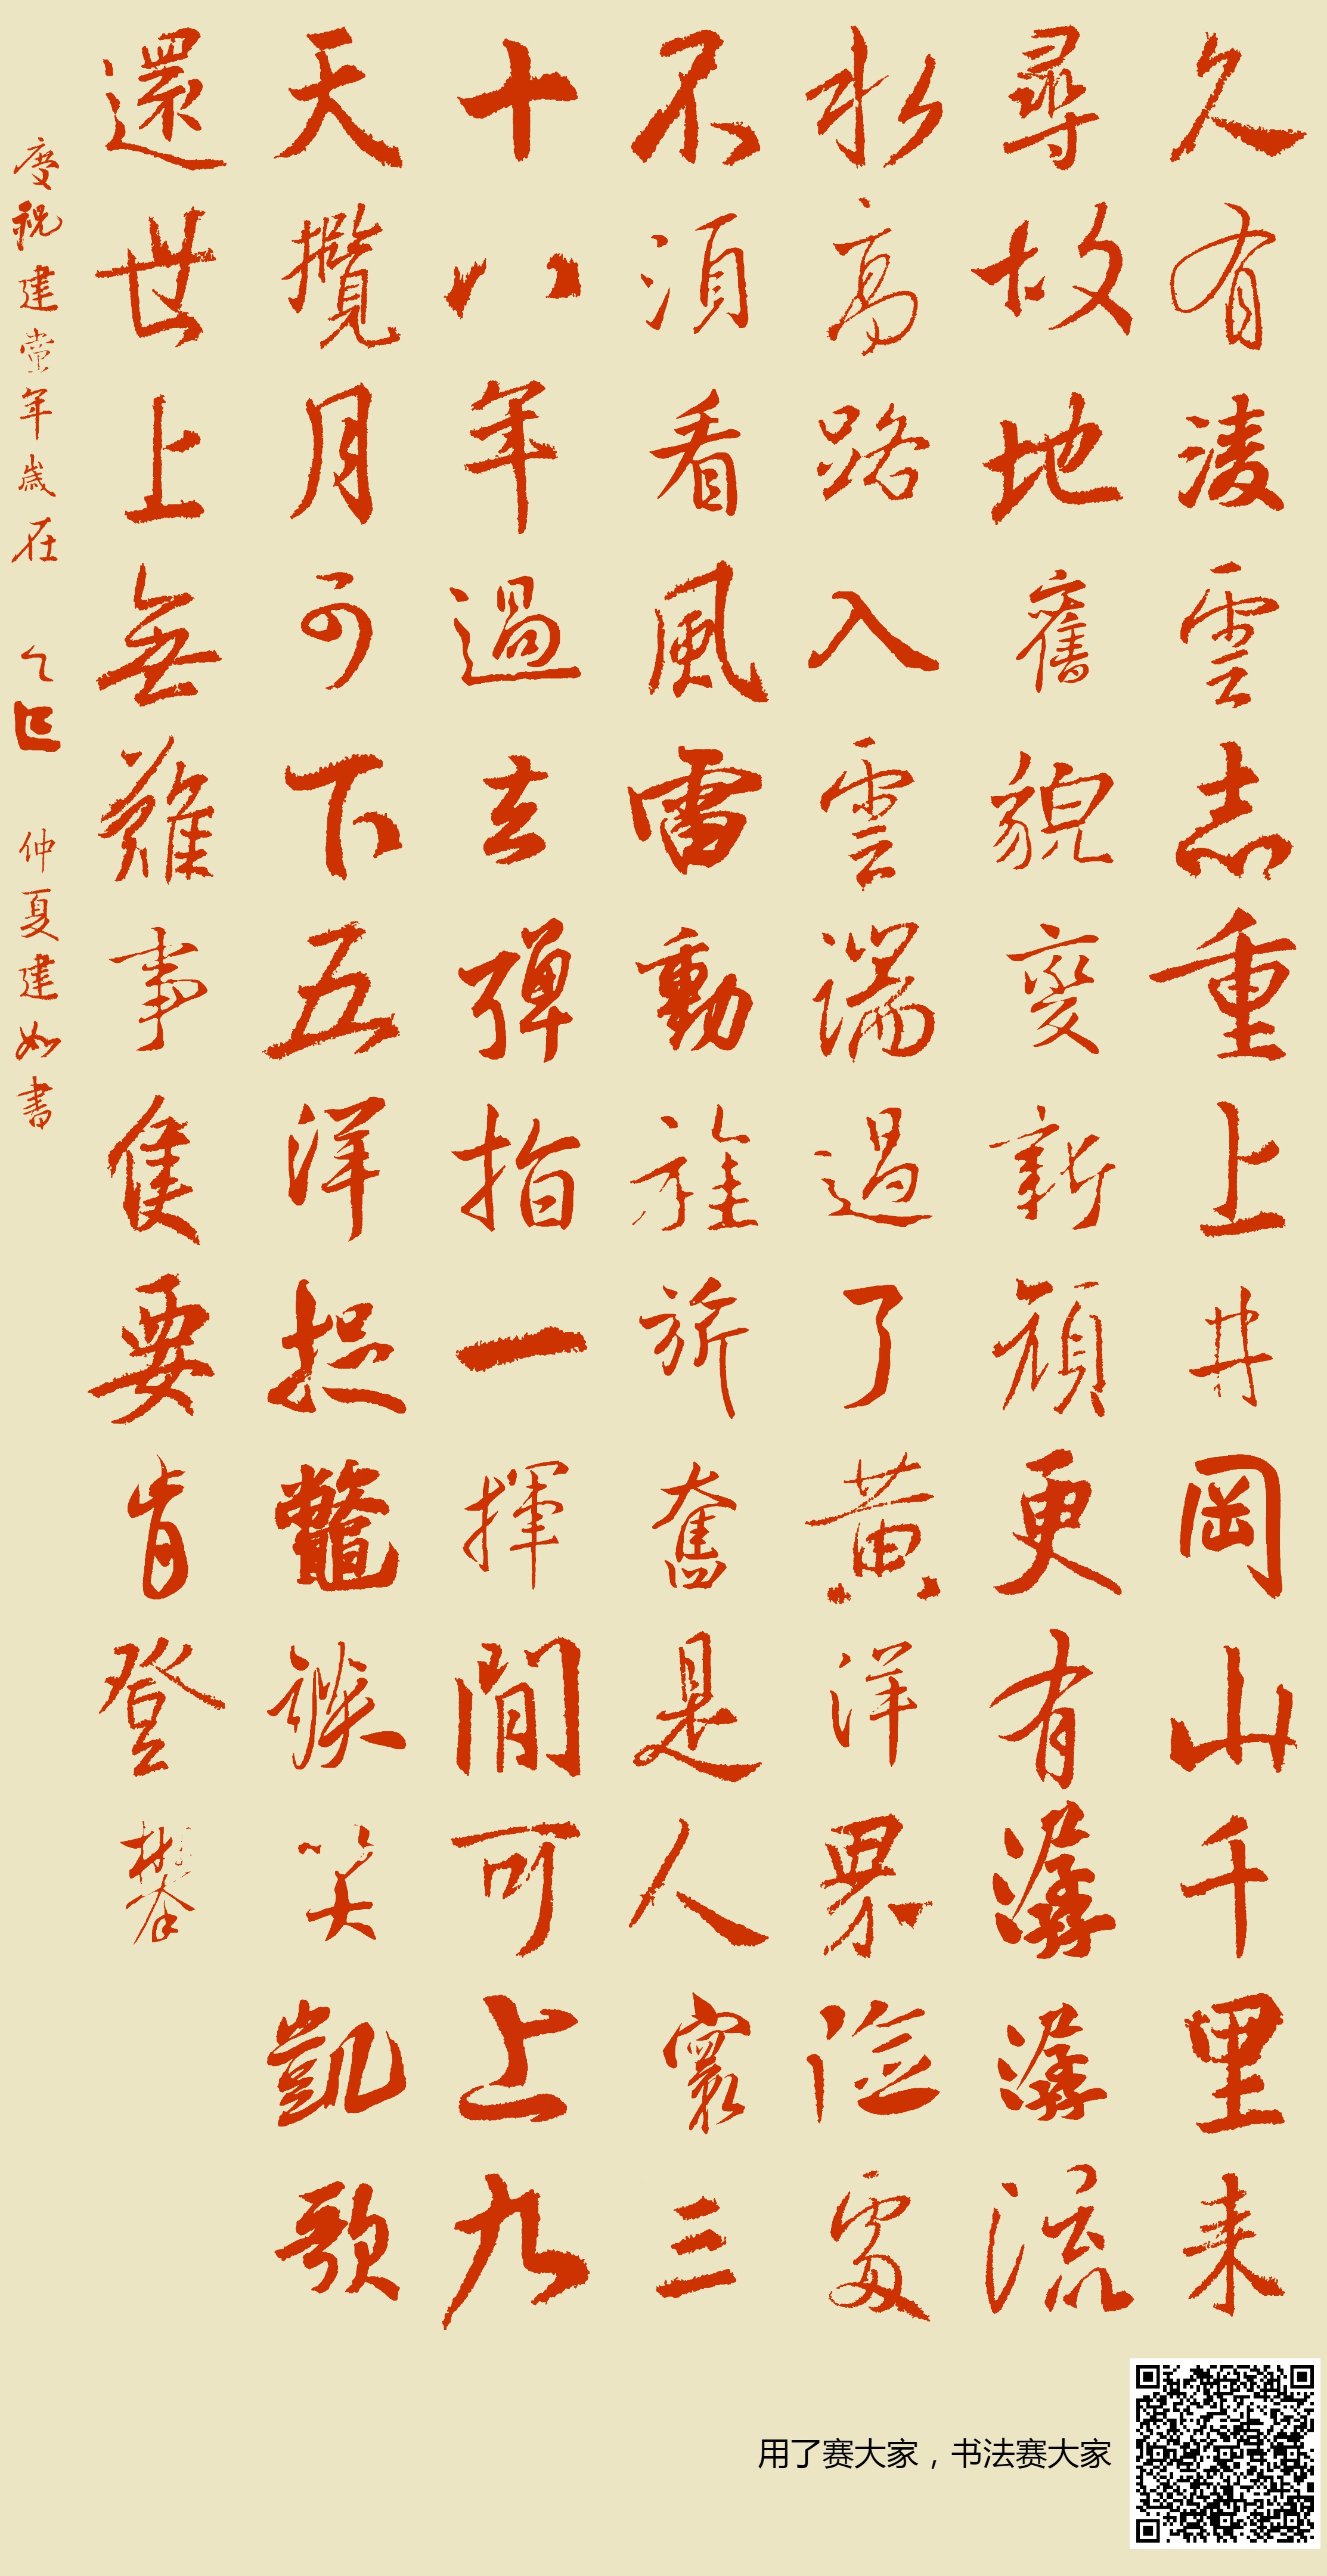 久有淩雲志重上井岡山千里来
尋故地舊貌變新顔更有潺潺流
水高路入雲端過了黄洋界險處
不須看風雷動旌旂奮是人寰三
十八年過去彈指一揮間可上九
天攬月可下五洋捉鱉談笑凱歌
還世上無難事隻要肯登攀
慶祝建黨年歲在 乙巳 仲夏建如書
用了赛大家，书法赛大家